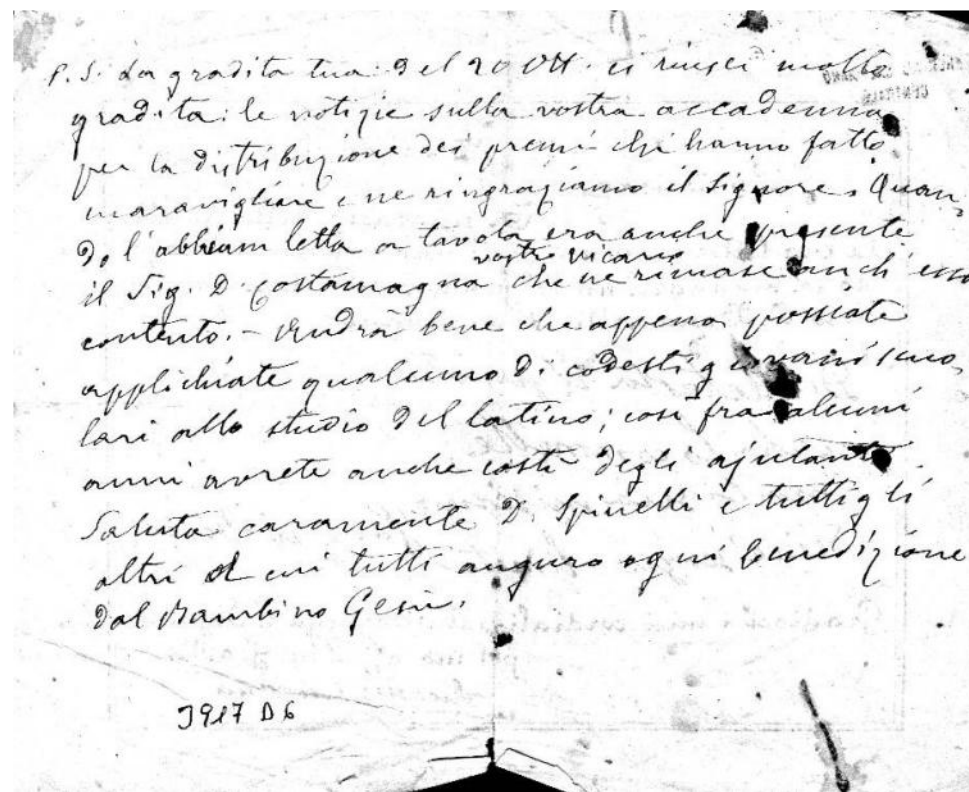 P.S. La gradita tua del 20 Ott. ci riuscì molto
gradita: le notizie sulla vostra accademia
per la distribuzione dei premi che hanno fatto
maravigliare e ne ringraziamo il Signore. Quan-
do l'abbiam letta a tavola era anche presente
vostro vicario
il Sig. D. Costamagna che ne rimase anch'esso
contento. - Andrà bene che appena possiate
applichiate qualcuno di codesti giovani sco-
lari allo studio del latino; così fra alcuni
anni avrete anche costì degli ajutanti.
Saluta caramente D. Spinelli e tutti gli
altri a cui tutti auguro ogni benedizione
dal Bambino Gesù.
3917 D6